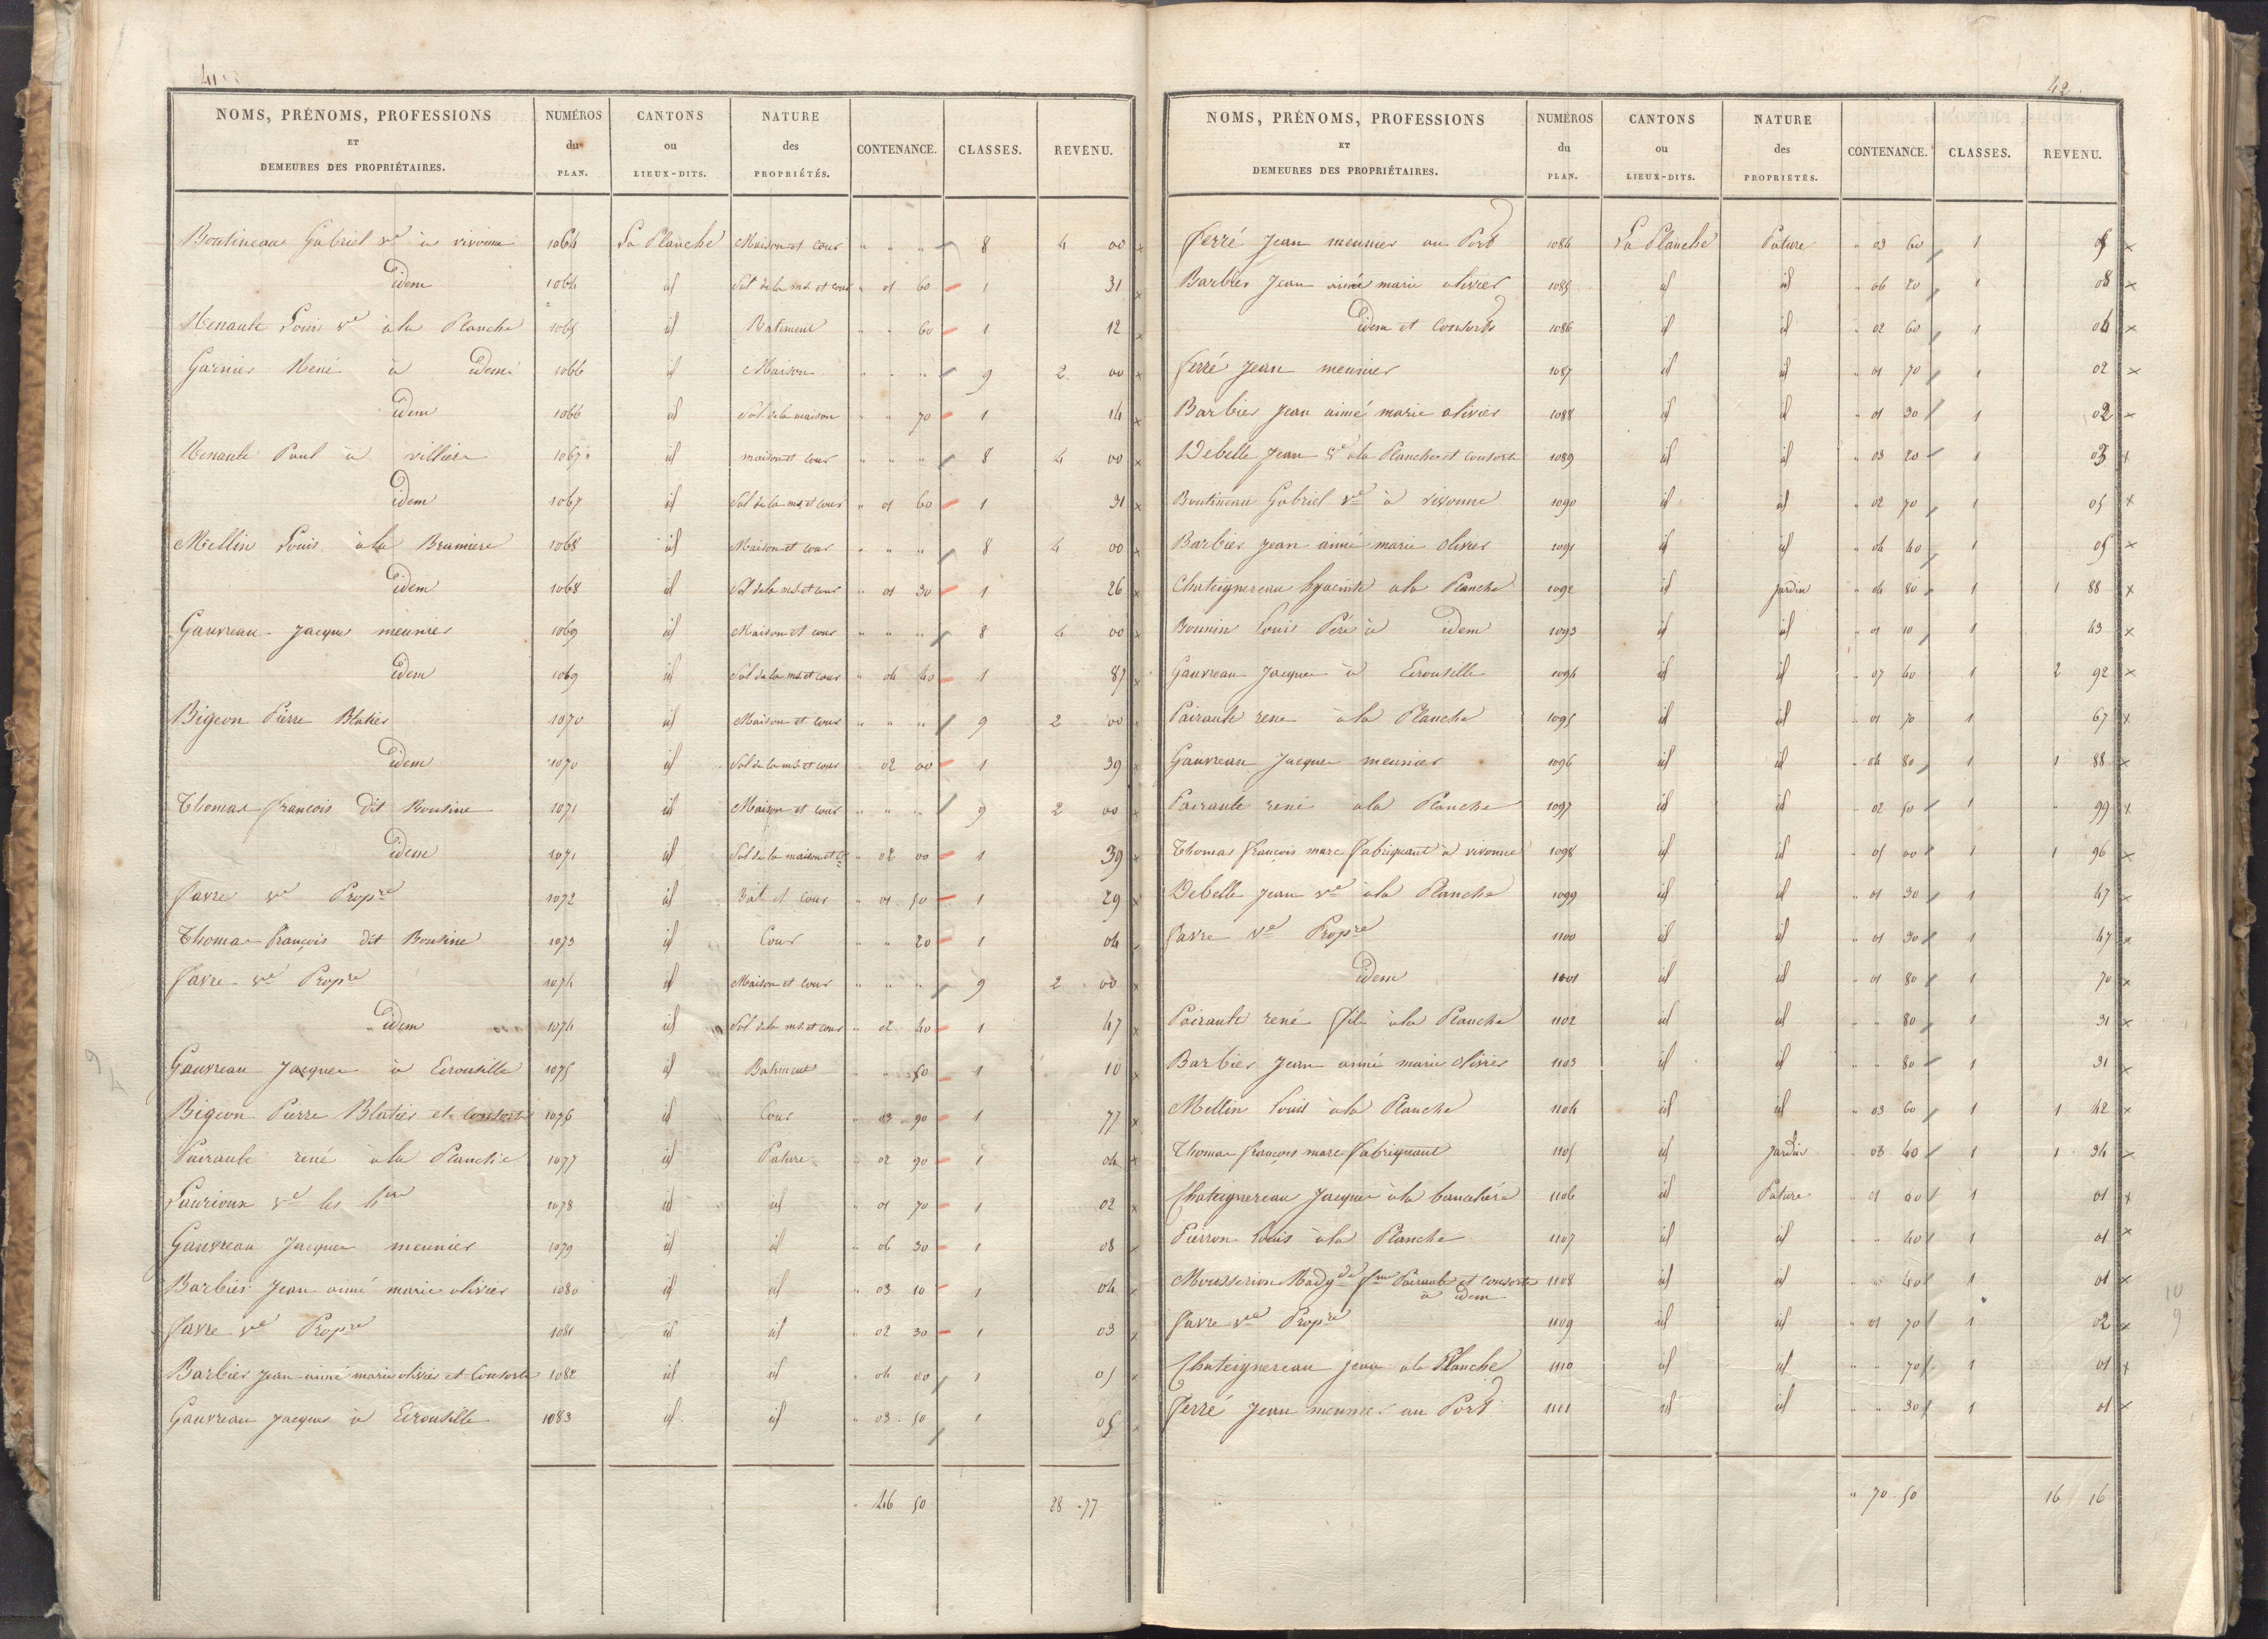 41
NOMS, PRÉNOMS, PROFESSIONS ET DEMEURES DES PROPRIÉTAIRES. NUMÉROS du PLAN. CANTONS ou LIEUX-DITS. NATURE des PROPRIÉTÉS. CONTENANCE. CLASSES. REVENU.
Boutineau Gabriel ve à vivonne 1064 La Planche Maison et cour " " " 8 4 00
idem 1064 id Sol de la mson et cour " 01 60 1 31
Renault Louis ve à la Planche 1065 id Batiment " " 60 1 12
Garnier René à idem 1066 id Maison " " " 9 2 00
idem 1066 id Sol de la maison " " 70 1 14
Renault Paul à villiers 1067 id maison et cour " " " 8 4 00
idem 1067 id Sol de la ms. et cour " 01 60 1 31
Mellin Louis à la 1068 id Maison et cour " " " 8 4 00
idem 1068 id Sol de la ms. et cour " 01 30 1 26
Gauvreau Jacques meunier 1069 id Maison et cour " " " 8 4 00
idem 1069 id Sol de la ms. et cour " 04 40 1 87
Bigeon Pierre Blatier 1070 id Maison et cour " " " 9 2 00
idem 1070 id Sol de la ms. et cour " 02 00 1 39
Thomas françois dit Bousine 1071 id Maison et cour " " " 9 2 00
idem 1071 id Sol de la maison et cr " 02 00 1 39
favre ve Propre 1072 id Bat. et cour " 01 50 1 29
Thomas françois dit Bousine 1073 id Cour " " 20 1 04
favre ve Propre 1074 id Maison et cour " " " 9 2 00
idem 1074 id Sol de la ms. et cour " 02 40 1 47
Gauvreau Jacques à 1075 id Batiment " " 50 1 10
Bigeon Pierre Blatier et consorts 1076 id Cour " 03 90 1 77
Pairault rené à la Planche 1077 id Pature " 02 90 1 04
Laurioux ve les hers 1078 id id " 01 70 1 02
Gauvreau Jacques meunier 1079 id id " 06 30 1 08
Barbier Jean aimé marie olivier 1080 id id " 03 10 1 04
favre ve Propre 1081 id id " 02 30 1 03
Barbier Jean aimé marie olivier et Consorts 1082 id id " 04 00 1 05
Gauvreau Jacques à 1083 id id " 03 50 1 05
" 46 50 28 77
42
NOMS, PRÉNOMS, PROFESSIONS ET DEMEURES DES PROPRIÉTAIRES. NUMÉROS du PLAN. CANTONS ou LIEUX-DITS. NATURE des PROPRIÉTÉS. CONTENANCE. CLASSES. REVENU.
ferré Jean meunier au Port 1084 La Planche Pature " 03 60 1 05
Barbier Jean aimé marie olivier 1085 id id " 06 20 1 08
idem et Consorts 1086 id id " 02 60 1 04
ferré Jean meunier 1087 id id " 01 70 1 02
Barbier Jean aimé marie olivier 1088 id id " 01 30 1 02
Debelle Jean ve à la Planche et consorts 1089 id id " 03 20 1 03
Boutineau Gabriel ve à vivonne 1090 id id " 02 70 1 05
Barbier Jean aimé marie olivier 1091 id id " 04 40 1 05
Chateignereau hyacinte à la Planche 1092 id jardin " 04 80 1 1 88
Bounin Louis Père à idem 1093 id id " 01 10 1 43
Gauvreau Jacques à 1094 id id " 07 40 1 2 92
Pairault rené à la Planche 1095 id id " 01 70 1 67
Gauvreau Jacques meunier 1096 id id " 04 80 1 1 88
Pairault rené à la Planche 1097 id id " 02 50 1 " 99
Thomas françois marc fabriquant à vivonne 1098 id id " 05 00 1 1 96
Debelle Jean ve à la Planche 1099 id id " 01 30 1 47
favre ve Propre 1100 id id " 01 30 1 47
idem 1101 id id " 01 80 1 70
Pairault rené fils à la Planche 1102 id id " " 80 1 31
Barbier Jean aimé marie olivier 1103 id id " " 80 1 31
Mellin Louis à la Planche 1104 id id " 03 60 1 1 42
Thomas françois marc fabriquant 1105 id Jardin " 03 40 1 1 34
Chateignereau Jacques à la 1106 id Pature " 01 00 1 01
Pierron Louis à la Planche 1107 id id " " 40 1 01
Mousserion Madgde fme Pairault et consorts à idem 1108 id id " " 40 1 01
favre ve Propre 1109 id id " 01 70 1 02
Chateignereau jean à la Planche 1110 id id " " 70 1 01
ferré Jean meunier au Port 1111 id id " " 30 1 01
" 70 50 16 16